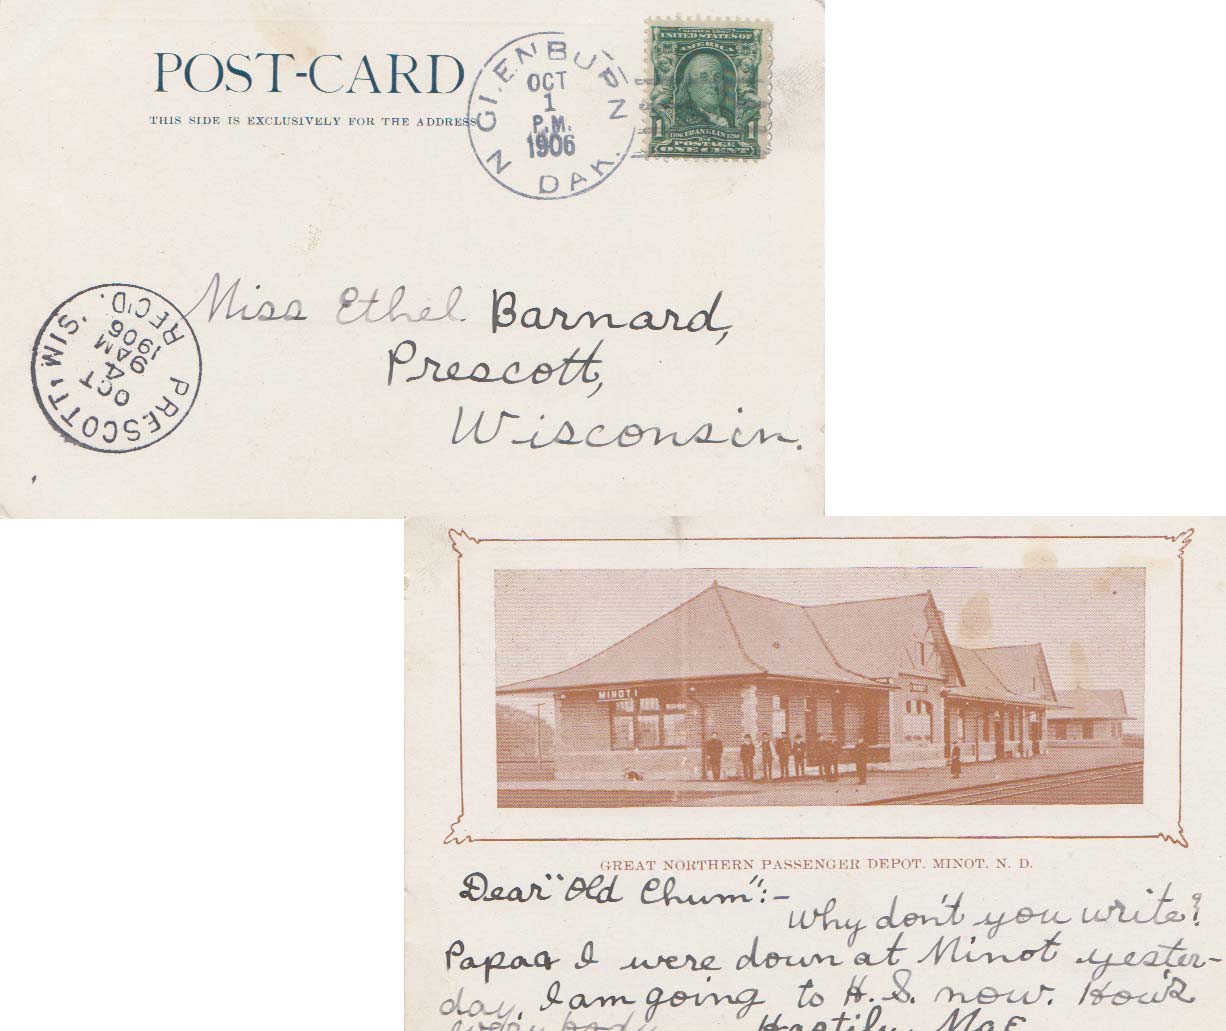 POST-CARD
THIS SIDE IS EXCLUSIVELY FOR THE ADDRESS
GLENBURN
OCT
1
P.M.
1906
N DAK.
SERIES 1902
UNITED STATES OF
AMERICA
1 1706 FRANKLIN 1790 1
POSTAGE
ONE CENT
PRESCOTT, WIS.
OCT
4
9 AM
1906
REC'D.
Miss Ethel Barnard,
Prescott,
Wisconsin.
MINOT
GREAT NORTHERN PASSENGER DEPOT, MINOT, N. D.
Dear "Old Chum":-
Why don't you write?
Papa & I were down at Minot yester-
day. I am going to H. S. now. How's
everybody Hastily, Mae